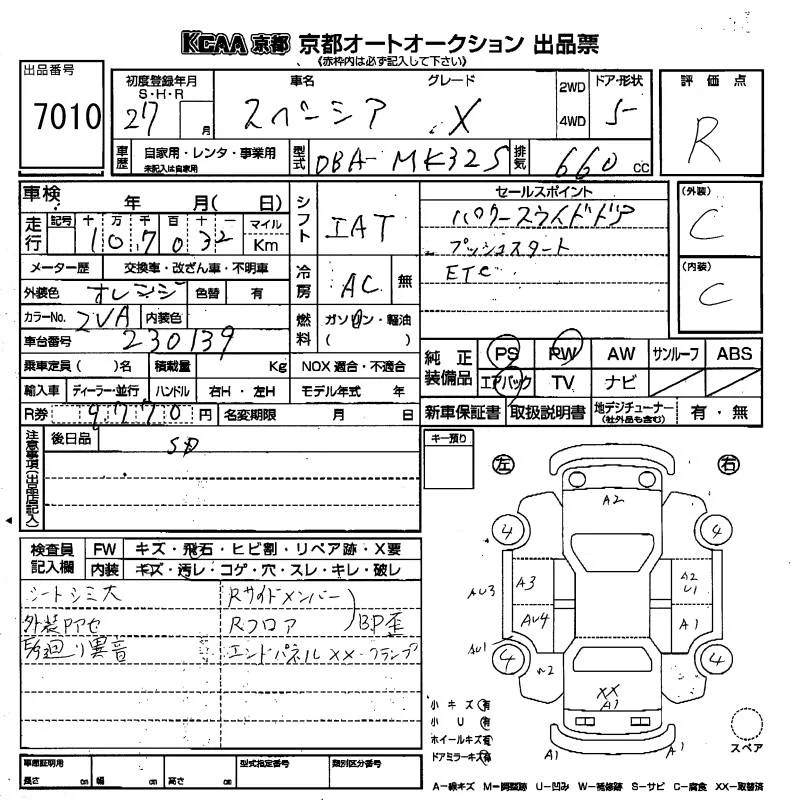 KCAA 京都 京都オートオークション 出品票
《赤枠内は必ず記入して下さい》
出品番号
7010
初度登録年月
S・H・R
27 月
車名
スペーシア
グレード
X
2WD
4WD
ドア・形状
5-
評価点
R
車歴
自家用・レンタ・事業用
未記入は自家用
型式
DBA-MK32S
排気
660 cc
車検 年 月( 日)
走行
記号 十 万 千 百 十 一 マイル
107032 Km
シフト
IAT
セールスポイント
パワースライドドア
プッシュスタート
ETC
(外装)
C
(内装)
C
メーター歴 交換車・改ざん車・不明車
冷房
AC 無
外装色 オレンジ 色替 有
カラーNo. ZVA 内装色
燃料
ガソリン・軽油
( )
車台番号 230139
乗車定員( )名 積載量 Kg NOX 適合・不適合
純正装備品
PS PW AW サンルーフ ABS
エアバック TV ナビ
輸入車 ディーラー・並行 ハンドル 右H・左H モデル年式 年
R券 9770 円 名変期限 月 日
新車保証書 取扱説明書 地デジチューナー(社外品も含む) 有・無
注意事項(出品店記入)
後日品
SD
キー預り
左
右
A2
4
4
A3
A2
U1
AU3
AU4
A1
AU1
4
4
W2
XX
A1
A1
A1
検査員記入欄
FW キズ・飛石・ヒビ割・リペア跡・X要
内装 キズ・汚レ・コゲ・穴・スレ・キレ・破レ
シートシミ大
外装Pアセ
E/G廻り異音
Rサイドメンバー
Rフロア
BP歪
エンドパネルXX・フランプ
小キズ 有
小U 有
ホイールキズ 有
ドアミラーキズ 有
スペア
車庫証明用
長さ cm 幅 cm 高さ cm
型式指定番号
類別区分番号
A−線キズ M−調整跡 U−凹み W−補修跡 S−サビ C−腐食 XX−取替済